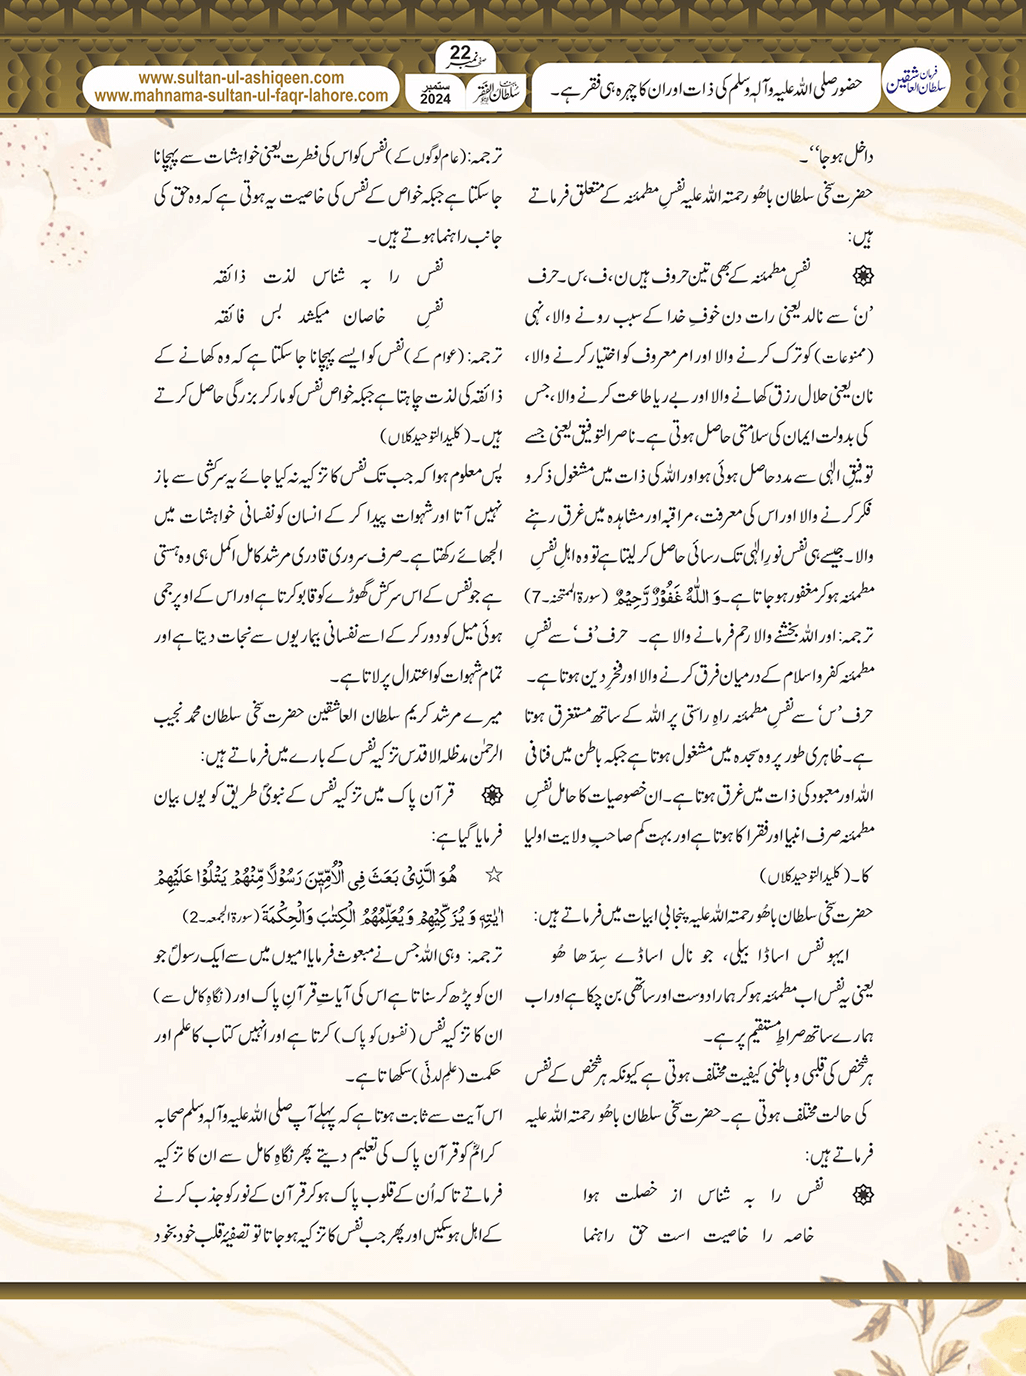 www.sultan-ul-ashiqeen.com
www.mahnama-sultan-ul-faqr-lahore.com
صفحہ نمبر 22
ستمبر 2024
سلطان الفقر
حضور صلی اللہ علیہ وآلہٖ وسلم کی ذات اور ان کا چہرہ ہی فقر ہے۔
فرمان سلطان العاشقین
داخل ہوجا‘‘۔
حضرت سخی سلطان باھُو رحمتہ اللہ علیہ نفسِ مطمئنہ کے متعلق فرماتے
ہیں:
نفسِ مطمئنہ کے بھی تین حروف ہیں ن، ف، س۔ حرف
’ن‘ سے نالد یعنی رات دن خوفِ خدا کے سبب رونے والا، نہی
(ممنوعات) کو ترک کرنے والا اور امر معروف کو اختیار کرنے والا،
نان یعنی حلال رزق کھانے والا اور بے ریا طاعت کرنے والا، جس
کی بدولت ایمان کی سلامتی حاصل ہوتی ہے۔ ناصر التوفیق یعنی جسے
توفیقِ الٰہی سے مدد حاصل ہوئی ہو اور اللہ کی ذات میں مشغول ذکر و
فکر کرنے والا اور اس کی معرفت، مراقبہ اور مشاہدہ میں غرق رہنے
والا۔ جیسے ہی نفس نورِ الٰہی تک رسائی حاصل کر لیتا ہے تو وہ اہلِ نفسِ
مطمئنہ ہو کر مغفور ہو جاتا ہے۔ وَ اللّٰهُ غَفُوْرٌ رَّحِيْمٌ (سورۃ الممتحنہ۔7)
ترجمہ: اور اللہ بخشنے والا رحم فرمانے والا ہے۔ حرف ’ف‘ سے نفسِ
مطمئنہ کفر و اسلام کے درمیان فرق کرنے والا اور فخرِ دین ہوتا ہے۔
حرف ’س‘ سے نفسِ مطمئنہ راہِ راستی پر اللہ کے ساتھ مستغرق ہوتا
ہے۔ ظاہری طور پر وہ سجدہ میں مشغول ہوتا ہے جبکہ باطن میں فنا فی
اللہ اور معبود کی ذات میں غرق ہوتا ہے۔ ان خصوصیات کا حامل نفسِ
مطمئنہ صرف انبیا اور فقرا کا ہوتا ہے اور بہت کم صاحبِ ولایت اولیا
کا۔ (کلید التوحید کلاں)
حضرت سخی سلطان باھُو رحمتہ اللہ علیہ پنجابی ابیات میں فرماتے ہیں:
ایہو نفس اساڈا بیلی، جو نال اساڈے سِدّھا ھُو
یعنی یہ نفس اب مطمئنہ ہو کر ہمارا دوست اور ساتھی بن چکا ہے اور اب
ہمارے ساتھ صراطِ مستقیم پر ہے۔
ہر شخص کی قلبی و باطنی کیفیت مختلف ہوتی ہے کیونکہ ہر شخص کے نفس
کی حالت مختلف ہوتی ہے۔ حضرت سخی سلطان باھُو رحمتہ اللہ علیہ
فرماتے ہیں:
نفس را بہ شناس از خصلت ہوا
خاصہ را خاصیت است حق راہنما
ترجمہ: (عام لوگوں کے) نفس کو اس کی فطرت یعنی خواہشات سے پہچانا
جا سکتا ہے جبکہ خواص کے نفس کی خاصیت یہ ہوتی ہے کہ وہ حق کی
جانب راہنما ہوتے ہیں۔
نفس را بہ شناس لذت ذائقہ
نفسِ خاصان میکشد بس فائقہ
ترجمہ: (عوام کے) نفس کو ایسے پہچانا جا سکتا ہے کہ وہ کھانے کے
ذائقہ کی لذت چاہتا ہے جبکہ خواص نفس کو مار کر بزرگی حاصل کرتے
ہیں۔ (کلید التوحید کلاں)
پس معلوم ہوا کہ جب تک نفس کا تزکیہ نہ کیا جائے یہ سرکشی سے باز
نہیں آتا اور شہوات پیدا کر کے انسان کو نفسانی خواہشات میں
الجھائے رکھتا ہے۔ صرف سروری قادری مرشد کامل اکمل ہی وہ ہستی
ہے جو نفس کے اس سرکش گھوڑے کو قابو کرتا ہے اور اس کے اوپر جمی
ہوئی میل کو دور کر کے اسے نفسانی بیماریوں سے نجات دیتا ہے اور
تمام شہوات کو اعتدال پر لاتا ہے۔
میرے مرشد کریم سلطان العاشقین حضرت سخی سلطان محمد نجیب
الرحمٰن مدظلہ الاقدس تزکیہ نفس کے بارے میں فرماتے ہیں:
قرآن پاک میں تزکیہ نفس کے نبویؐ طریق کو یوں بیان
فرمایا گیا ہے:
☆ هُوَ الَّذِىْ بَعَثَ فِى الْاُمِّيّٖنَ رَسُوْلًا مِّنْهُمْ يَتْلُوْا عَلَيْهِمْ
اٰيٰتِهٖ وَ يُزَكِّيْهِمْ وَ يُعَلِّمُهُمُ الْكِتٰبَ وَالْحِكْمَةَ (سورۃ الجمعہ۔2)
ترجمہ: وہی اللہ جس نے مبعوث فرمایا امیوں میں سے ایک رسولؐ جو
ان کو پڑھ کر سناتا ہے اس کی آیاتِ قرآنِ پاک اور (نگاہِ کامل سے)
ان کا تزکیہ نفس (نفسوں کو پاک) کرتا ہے اور انہیں کتاب کا علم اور
حکمت (علمِ لدنّی) سکھاتا ہے۔
اس آیت سے ثابت ہوتا ہے کہ پہلے آپ صلی اللہ علیہ وآلہٖ وسلم صحابہ
کرامؓ کو قرآن پاک کی تعلیم دیتے پھر نگاہِ کامل سے ان کا تزکیہ
فرماتے تاکہ اُن کے قلوب پاک ہو کر قرآن کے نور کو جذب کرنے
کے اہل ہو سکیں اور پھر جب نفس کا تزکیہ ہو جاتا تو تصفیۂ قلب خود بخود